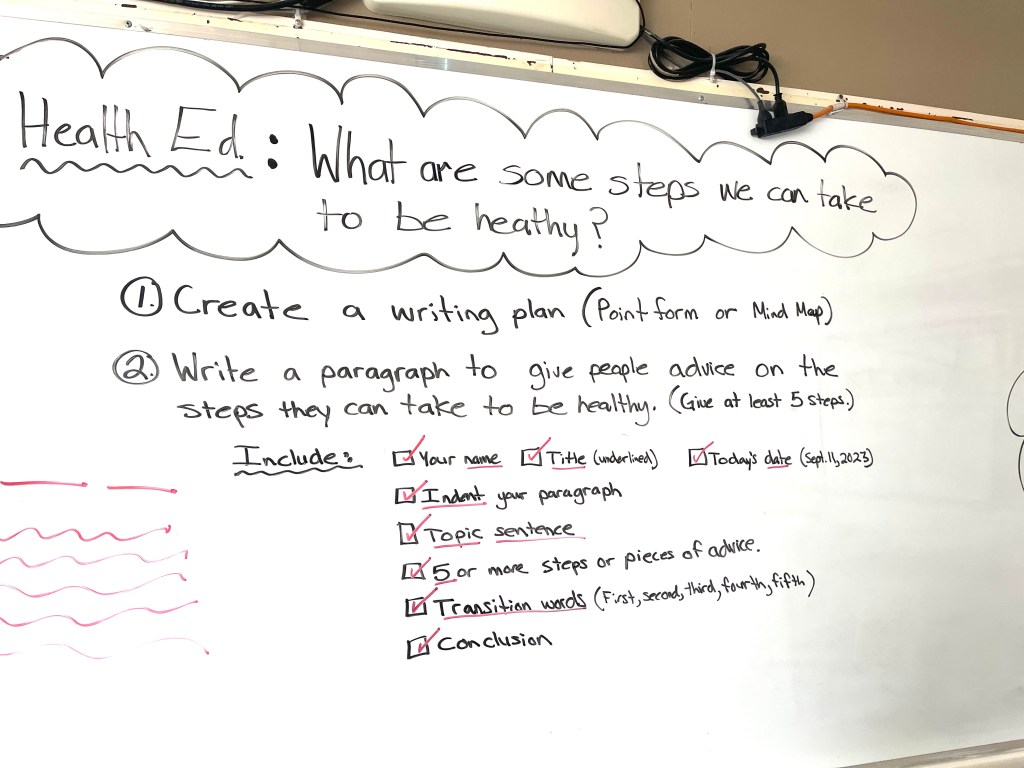 Health Ed.: What are some steps we can take
to be heathy?
1. Create a writing plan (Point form or Mind Map)
2. Write a paragraph to give people advice on the
steps they can take to be healthy. (Give at least 5 steps.)
Include: Your name Title (underlined) Today's date (Sept. 11, 2023)
Indent your paragraph
Topic sentence
5 or more steps or pieces of advice.
Transition words (First, second, third, fourth, fifth)
Conclusion